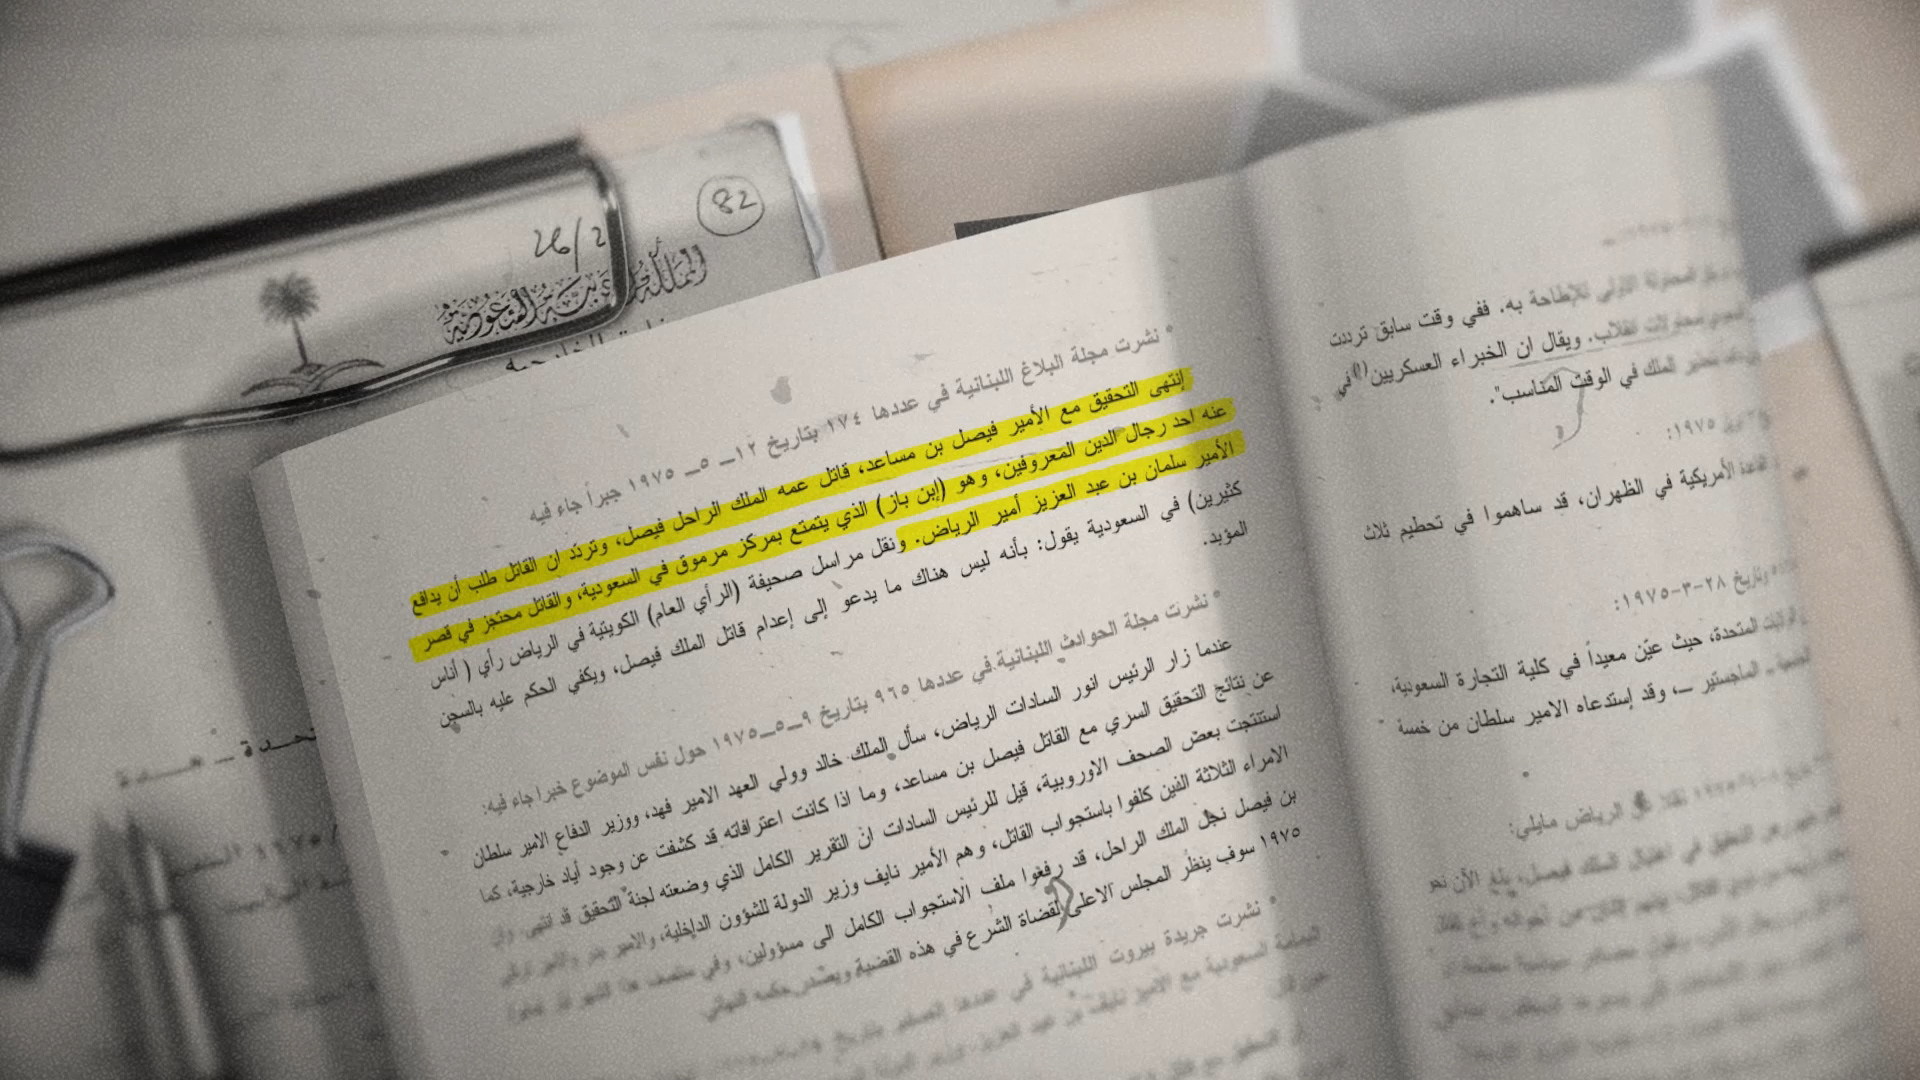 82
26/2
المملكة العربية السعودية
* نشرت مجلة البلاغ اللبنانية في عددها ١٧٤ بتاريخ ١٢ــ ٥ــ ١٩٧٥ خبراً جاء فيه
إنتهى التحقيق مع الأمير فيصل بن مساعد، قاتل عمه الملك الراحل فيصل، وتردّد ان القاتل طلب أن يدافع
عنه احد رجال الدين المعروفين، وهو (إبن باز) الذي يتمتع بمركز مرموق في السعودية، والقاتل محتجز في قصر
الأمير سلمان بن عبد العزيز أمير الرياض. ونقل مراسل صحيفة (الرأي العام) الكويتية في الرياض رأي ( أناس
كثيرين) في السعودية يقول: بأنه ليس هناك ما يدعو إلى إعدام قاتل الملك فيصل، ويكفي الحكم عليه بالسجن
المؤبد.
* نشرت مجلة الحوادث اللبنانية في عددها ٩٦٥ بتاريخ ٩ــ٥ــ١٩٧٥ حول نفس الموضوع خبرا جاء فيه:
عندما زار الرئيس انور السادات الرياض، سأل الملك خالد وولي العهد الامير فهد، ووزير الدفاع الامير سلطان
عن نتائج التحقيق السري مع القاتل فيصل بن مساعد، وما اذا كانت اعترافاته قد كشفت عن وجود أياد خارجية، كما
استنتجت بعض الصحف الاوروبية، قيل للرئيس السادات انّ التقرير الكامل الذي وضعته لجنة التحقيق قد انتهى، وأن
الامراء الثلاثة الذين كلفوا باستجواب القاتل، وهم الأمير نايف وزير الدولة للشؤون الداخلية، والامير
بن فيصل نجل الملك الراحل، قد رفعوا ملف الاستجواب الكامل الى مسؤولين، وفي منتصف هذا الشهر
١٩٧٥ سوف ينظر المجلس الاعلى لقضاة الشرع في هذه القضية ويصدر حكمه النهائي
* نشرت جريدة بيروت اللبنانية في عددها الصادر بتاريخ
السعودية مع الامير نايف بن عبد العزيز، وزير
للإطاحة به. ففي وقت سابق ترددت
محاولات انقلاب. ويقال ان الخبراء العسكريين(١) في
الملك في الوقت المناسب".
١٩٧٥:
الأمريكية في الظهران، قد ساهموا في تحطيم ثلاث
وتاريخ ٢٨-٣-١٩٧٥:
المتحدة، حيث عيّن معيداً في كلية التجارة السعودية،
ــ الماجستير ــ، وقد إستدعاه الامير سلطان من خمسة
الرياض مايلي:
التحقيق في اغتيال الملك فيصل، بلغ الآن نحو